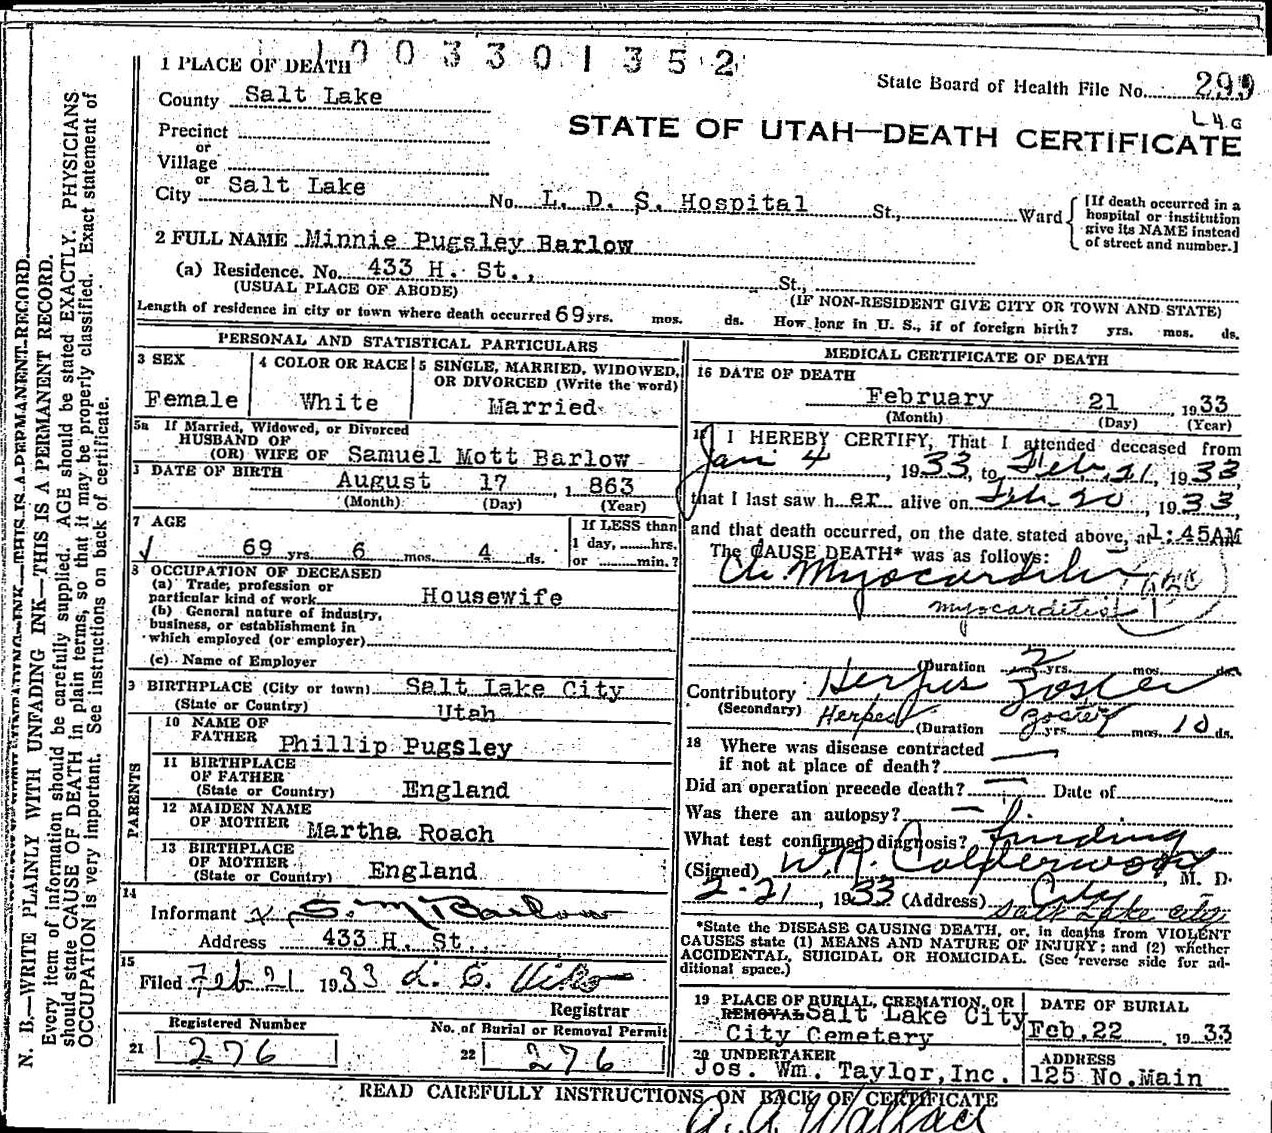 1003301352
1 PLACE OF DEATH
State Board of Health File No. 299
County Salt Lake
L4G
STATE OF UTAH—DEATH CERTIFICATE
Precinct
or
Village
or
City Salt Lake No. L. D. S. Hospital St., Ward
[If death occurred in a
hospital or institution
give its NAME instead
of street and number.]
2 FULL NAME Minnie Pugsley Barlow
(a) Residence. No. 433 H. St., St.,
(USUAL PLACE OF ABODE) (IF NON-RESIDENT GIVE CITY OR TOWN AND STATE)
Length of residence in city or town where death occurred 69 yrs. mos. ds. How long in U. S., if of foreign birth? yrs. mos. ds.
PERSONAL AND STATISTICAL PARTICULARS
3 SEX
Female
4 COLOR OR RACE
White
5 SINGLE, MARRIED, WIDOWED,
OR DIVORCED (Write the word)
Married
5a If Married, Widowed, or Divorced
HUSBAND OF
(OR) WIFE OF Samuel Mott Barlow
DATE OF BIRTH
August 17, 1863
(Month) (Day) (Year)
7 AGE
69 yrs. 6 mos. 4 ds.
If LESS than
1 day, hrs.
or min.?
8 OCCUPATION OF DECEASED
(a) Trade, profession or
particular kind of work Housewife
(b) General nature of industry,
business, or establishment in
which employed (or employer)
(c) Name of Employer
9 BIRTHPLACE (City or town) Salt Lake City
(State or Country) Utah
PARENTS
10 NAME OF
FATHER Phillip Pugsley
11 BIRTHPLACE
OF FATHER
(State or Country) England
12 MAIDEN NAME
OF MOTHER Martha Roach
13 BIRTHPLACE
OF MOTHER
(State or Country) England
14
Informant S. M. Barlow
Address 433 H. St.
15
Filed Feb 21 1933
Registrar
Registered Number
21 276
No. of Burial or Removal Permit
22 276
MEDICAL CERTIFICATE OF DEATH
16 DATE OF DEATH
February 21, 1933
(Month) (Day) (Year)
17 I HEREBY CERTIFY, That I attended deceased from
Jan 4, 1933, to Feb. 21, 1933
that I last saw h er alive on Feb 20, 1933
and that death occurred, on the date stated above, at 1:45AM
The CAUSE DEATH* was as follows:
Ch. Myocarditis
myocarditis
(Duration 2 yrs. mos. ds.
Contributory Herpes Zoster
(Secondary) Herpes zoster
(Duration yrs. mos. 10 ds.
18 Where was disease contracted
if not at place of death?
Did an operation precede death? Date of
Was there an autopsy?
What test confirmed diagnosis? finding
(Signed) W.R. Calderwood, M. D.
2-21, 1933 (Address) City
Salt Lake City
*State the DISEASE CAUSING DEATH, or, in deaths from VIOLENT
CAUSES state (1) MEANS AND NATURE OF INJURY; and (2) whether
ACCIDENTAL, SUICIDAL OR HOMICIDAL. (See reverse side for ad-
ditional space.)
19 PLACE OF BURIAL, CREMATION, OR
REMOVAL Salt Lake City
City Cemetery
DATE OF BURIAL
Feb.22 1933
20 UNDERTAKER
Jos. Wm. Taylor,Inc.
ADDRESS
125 No.Main
READ CAREFULLY INSTRUCTIONS ON BACK OF CERTIFICATE
A. A. Wallace
N. B.—WRITE PLAINLY WITH UNFADING INK—THIS IS A PERMANENT RECORD.
Every item of information should be carefully supplied. AGE should be stated EXACTLY. PHYSICIANS
should state CAUSE OF DEATH in plain terms, so that it may be properly classified. Exact statement of
OCCUPATION is very important. See instructions on back of certificate.